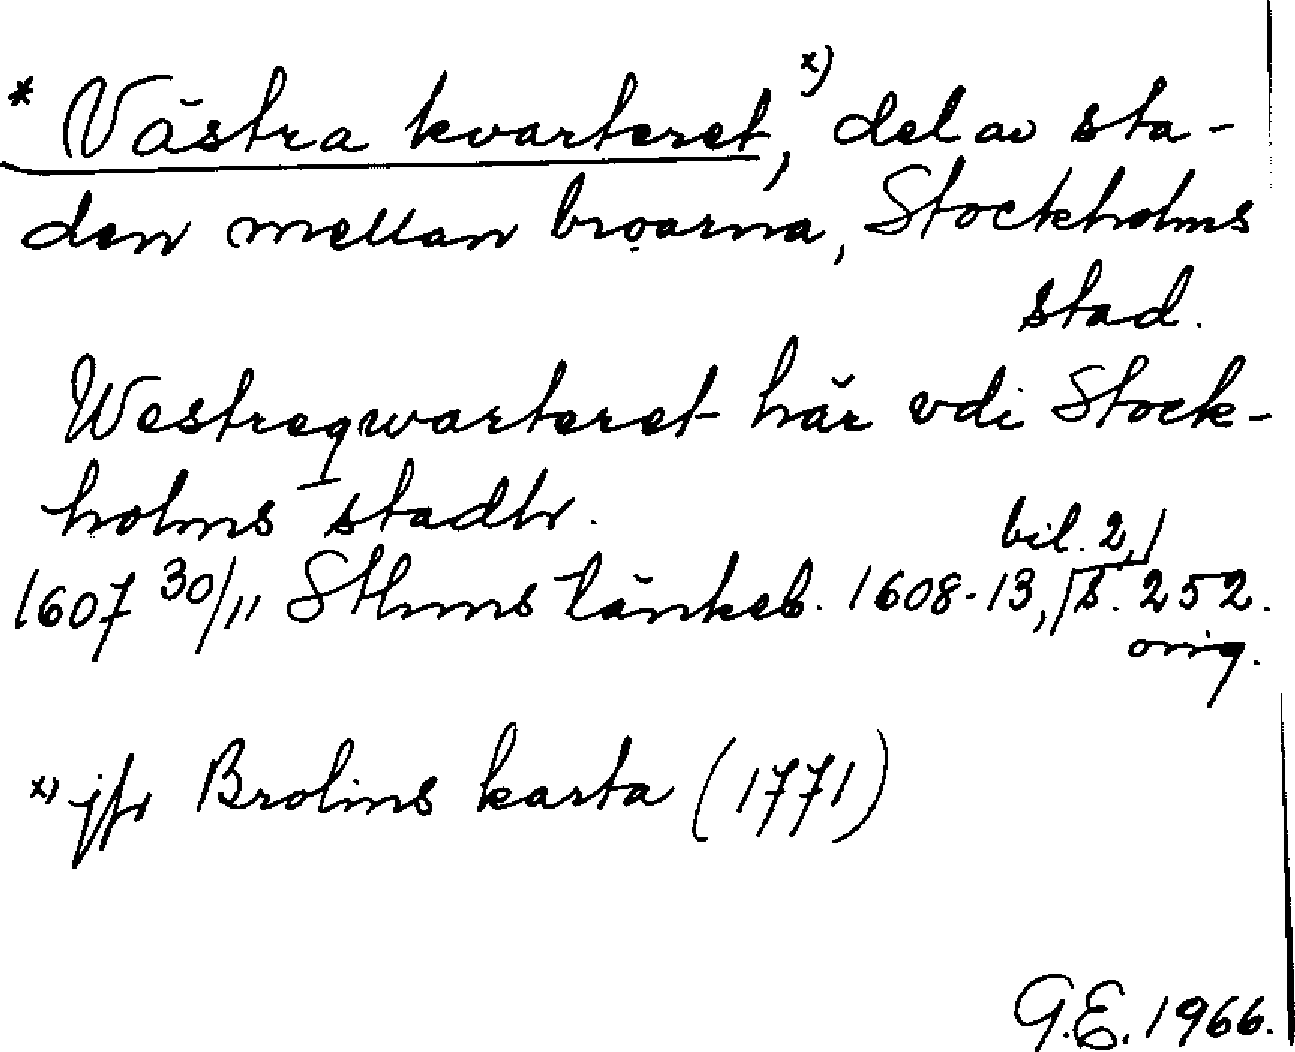 * Västra kvarteret, x) del av sta-
den mellan broarna, Stockholms
stad.
Westreqwarteret här vdi Stock-
holms stadh.
1607 30/11 Sthms tänkeb. 1608-13, bil. 2, s. 252.
orig.
x) jfr Brolins karta (1771)
G.E. 1966.